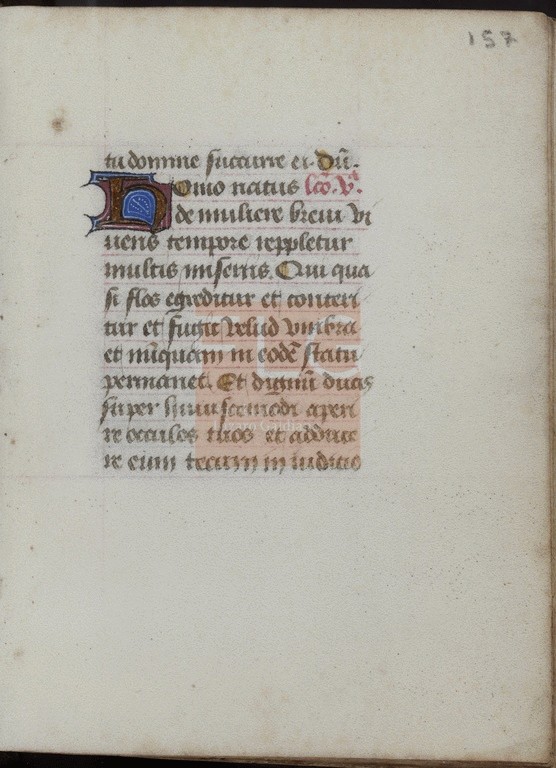 157
tu domine succurre ei. Dū.
Homo natus lco. V.
de muliere breui vi
uens tempore reppletur
multis miseriis. Qui qua
si flos egreditur et conteri
tur et fugit velud vmbra
et nūquam in eodē statu
permanet. Et dignū ducis
super huiuscemodi aperi
re occulos tuos et adduce
re eum tecum in iudicio